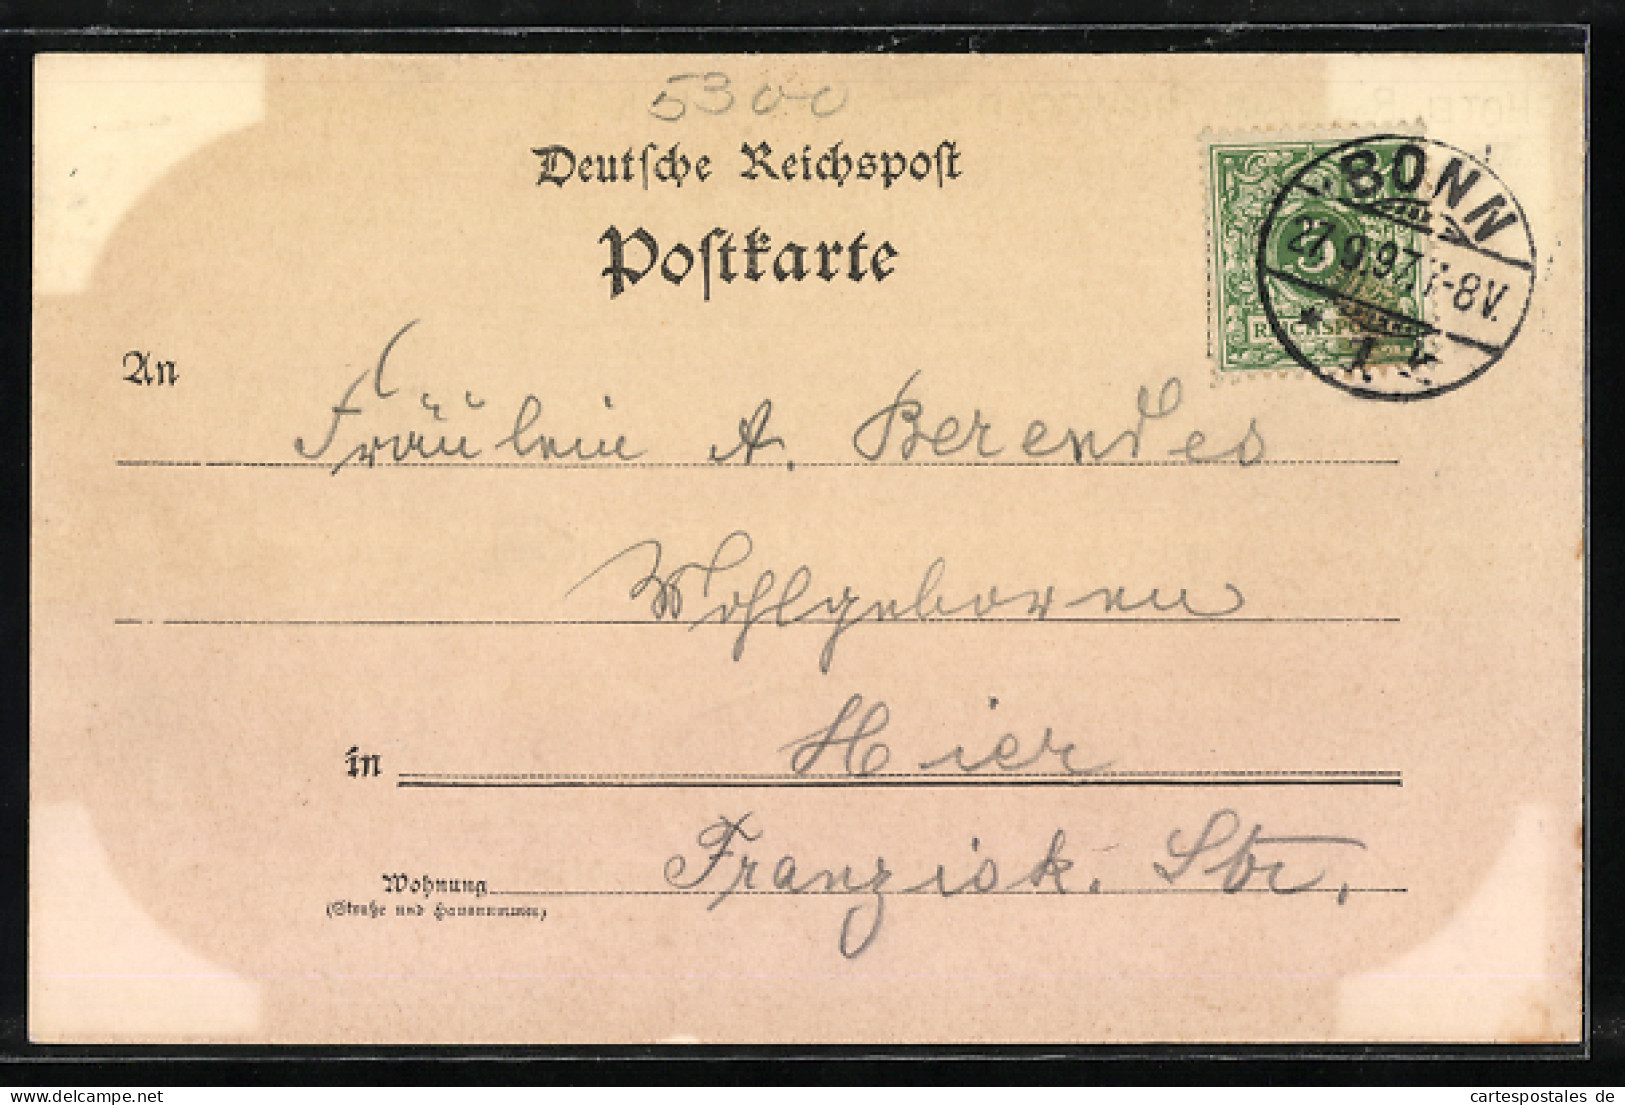 5300
Deutsche Reichspost
Postkarte
BONN
27.9.97. 7-8V.
* 1. *
5
REICHSPOST
An
Fräulein A. Berendes
Wohlgeboren
in Hier
Wohnung Franzisk. Str.
(Straße und Hausnummer)
www.cartespostales.de